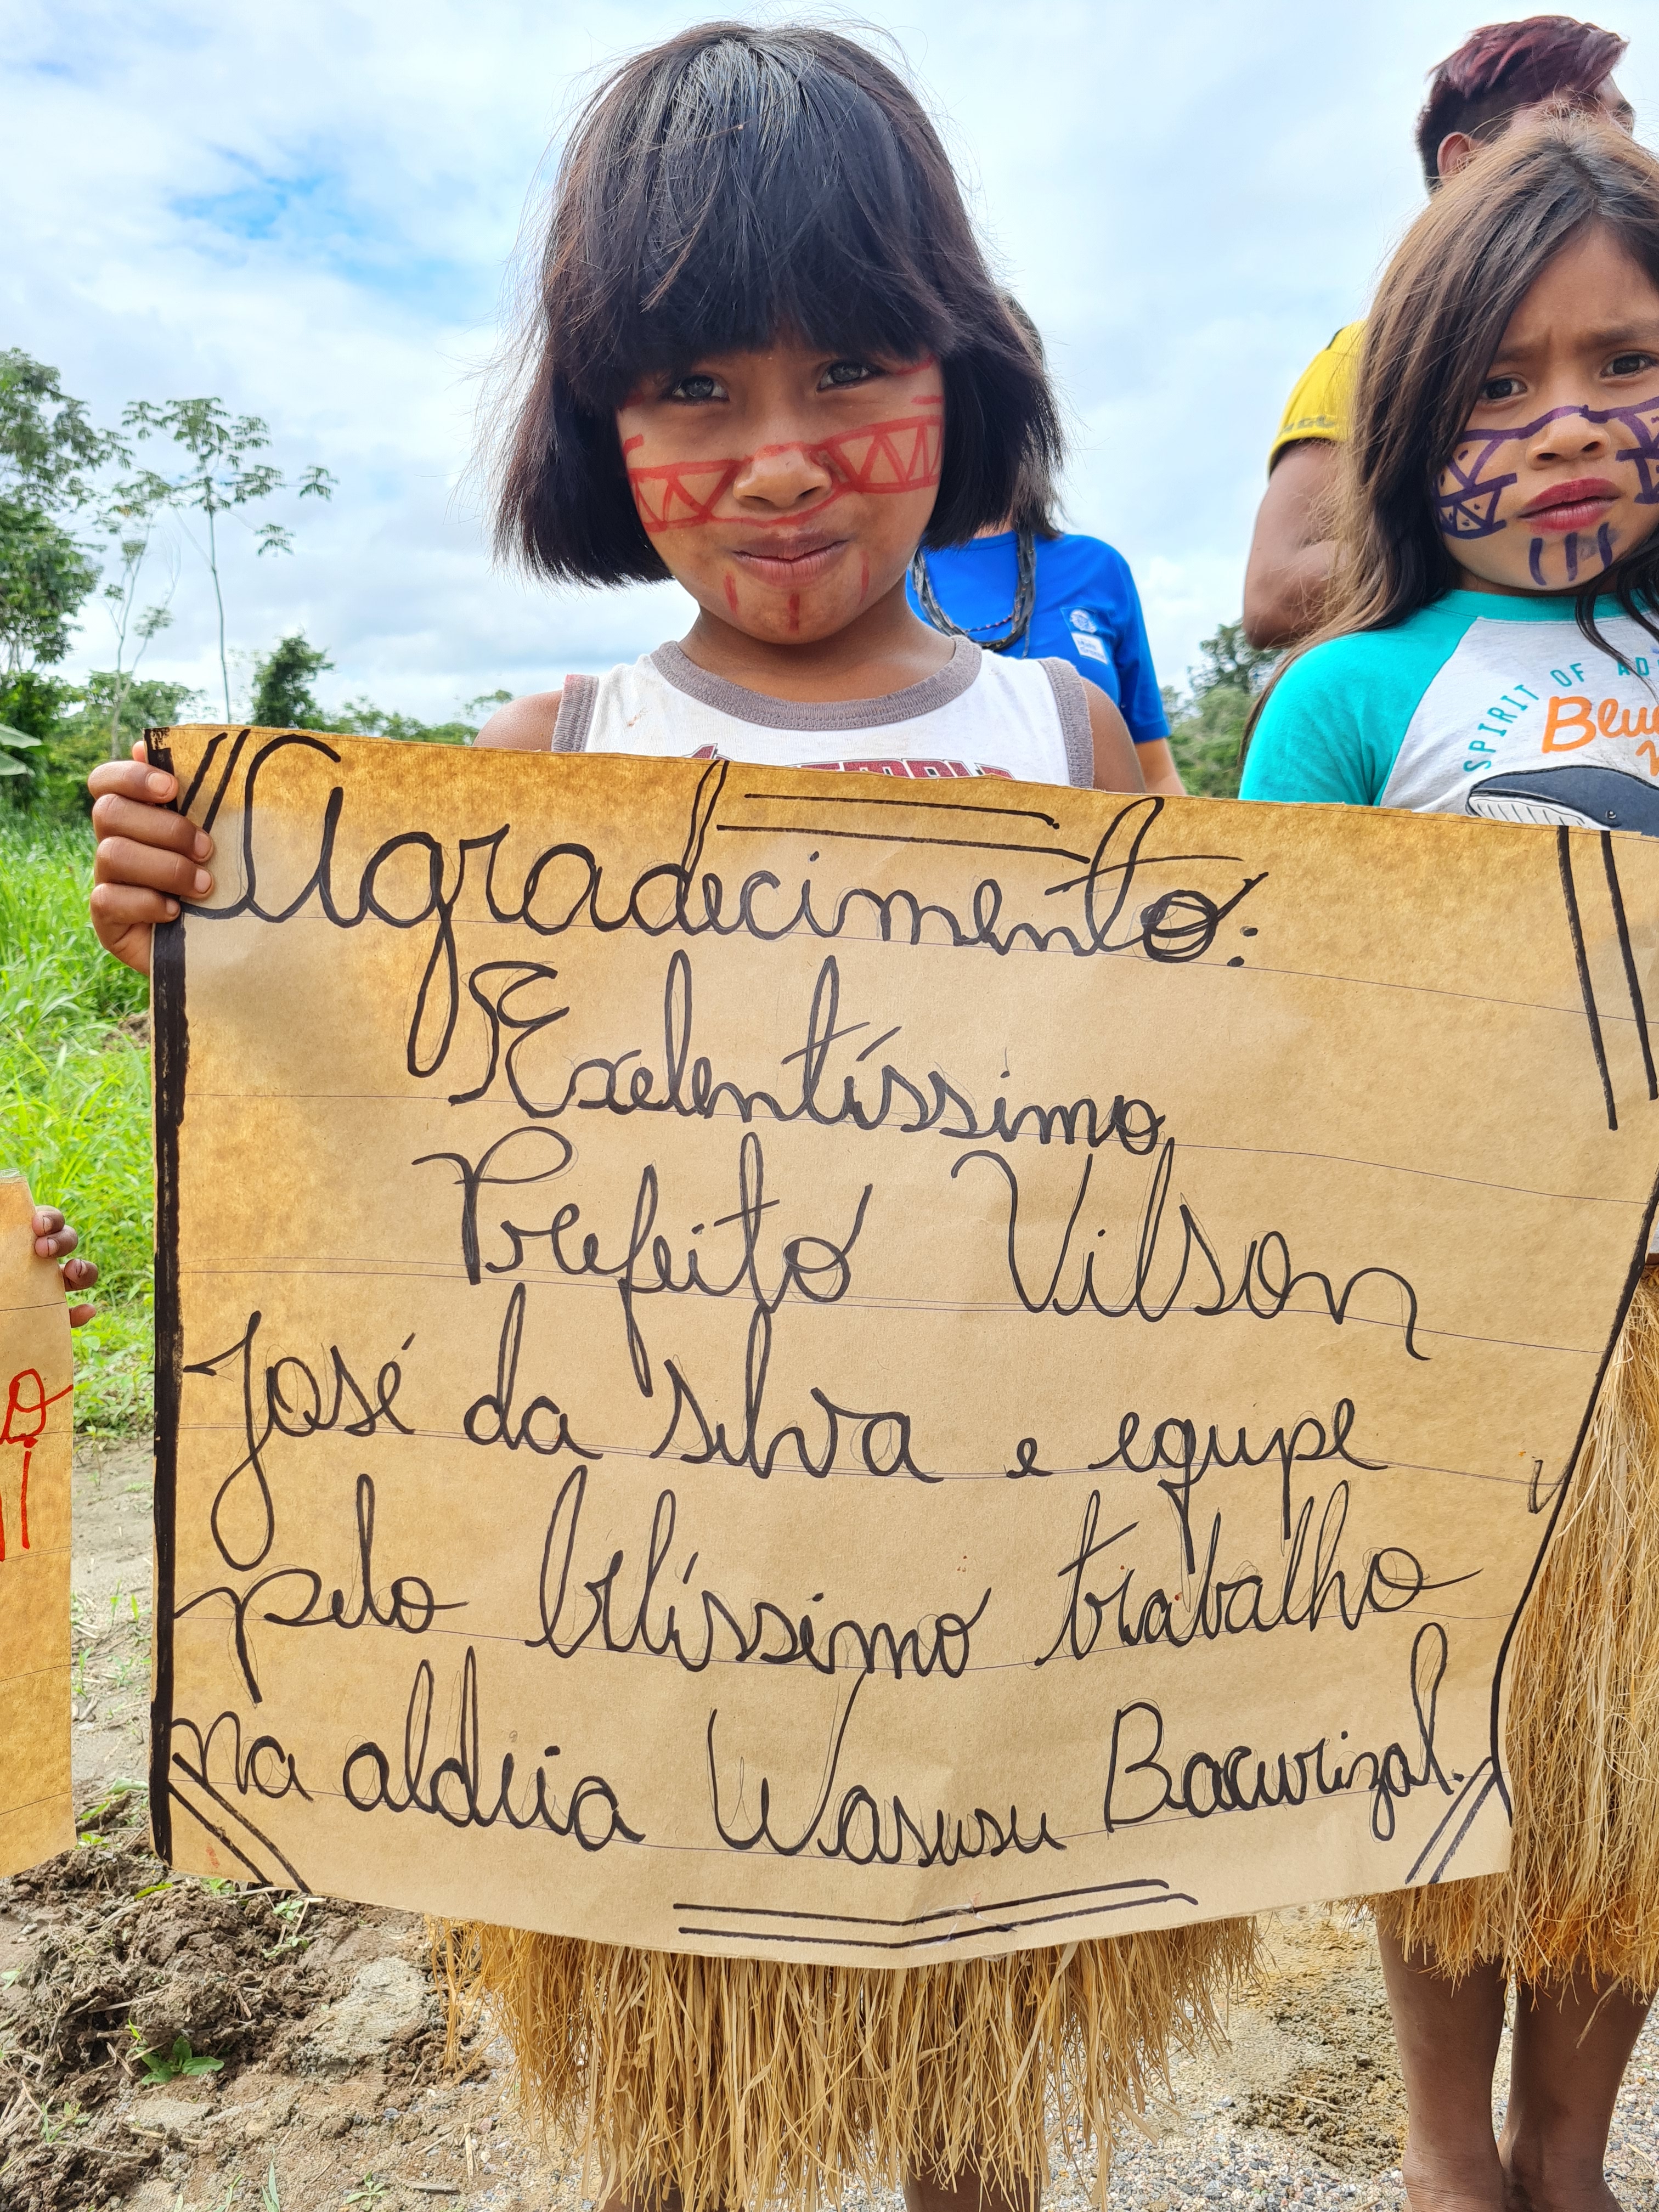 Agradecimento:
Exelentíssimo
Prefeito Vilson
José da silva e equipe
pelo belíssimo trabalho
na aldeia Wasusu Bacurizal.
SPIRIT OF AD
Blu